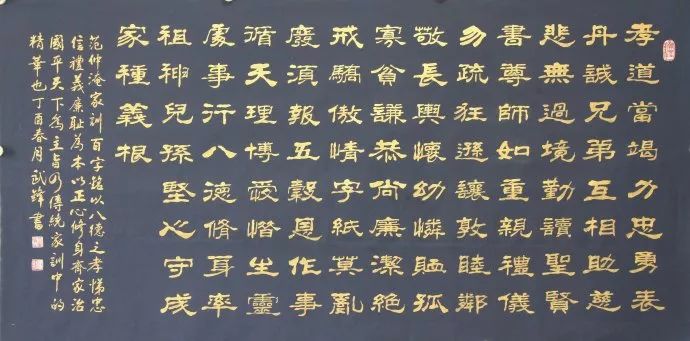 孝道當竭力忠勇表
丹誠兄弟互相助慈
悲無過境勤讀聖賢
書尊師如重親禮儀
勿疏狂遜讓敦睦鄰
敬長與懷幼憐賉孤
寡貧謙恭尚廉潔絕
戒驕傲情字紙莫亂
廢須報五穀恩作事
循天理博愛惜生靈
處事行八德脩身率
祖神兒孫堅心守成
家種義根
范仲淹家訓百字銘以八德之孝悌忠
信禮義廉耻為本以正心修身齊家治
國平天下為主旨乃傳統家訓中的
精華也丁酉春月武鋒書